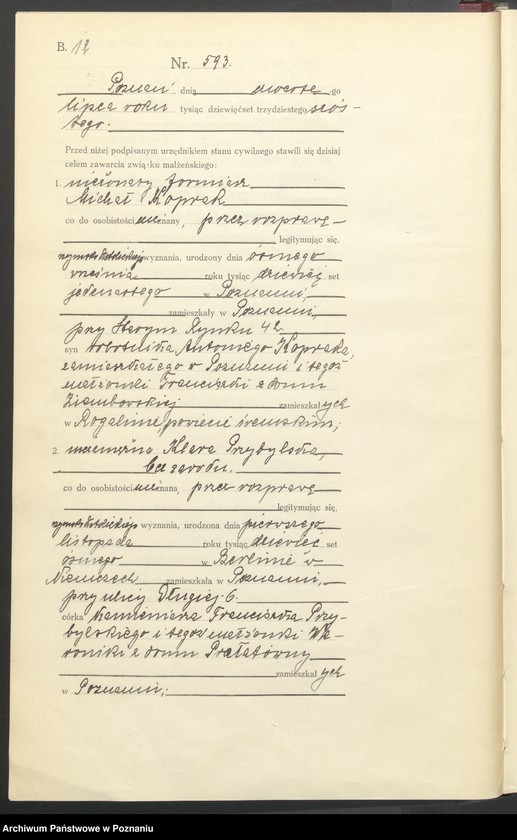 B. 12
Nr. 593.
Poznań dnia czwarte -go
lipca roku tysiąc dziewięćset trzydziestego szós-
tego.
Przed niżej podpisanym urzędnikiem stanu cywilnego stawili się dzisiaj
celem zawarcia związku małżeńskiego:
1. nieżonaty formierz
Michał Koprak
co do osobistości uznany, przez rozprawę
legitymując się,
rzymskokatolickiego wyznania, urodzony dnia ósmego
września roku tysiąc dziewięć set
jedenastego w Poznaniu,
zamieszkały w Poznaniu,
przy Starym Rynku 42
syn robotnika Antoniego Kopraka,
zamieszkałego w Poznaniu i tegoż
małżonki Franciszki z domu
zamieszkał ych
w Rogalinie, powiecie śremskim;
2. niezamężna Klara Przybylska,
bez zawodu.
co do osobistości uznana, przez rozprawę
legitymując się,
rzymskokatolickiego wyznania, urodzona dnia pierwszego
listopada roku tysiąc dziewięć set
ósmego w Berlinie w
Niemczech zamieszkała w Poznaniu,
przy ulicy Długiej 6
córka kamieniarza Franciszka Przy-
bylskiego i tegoż małżonki We-
roniki z domu Prałatówny
zamieszkał ych
w Poznaniu;
Archiwum Państwowe w Poznaniu